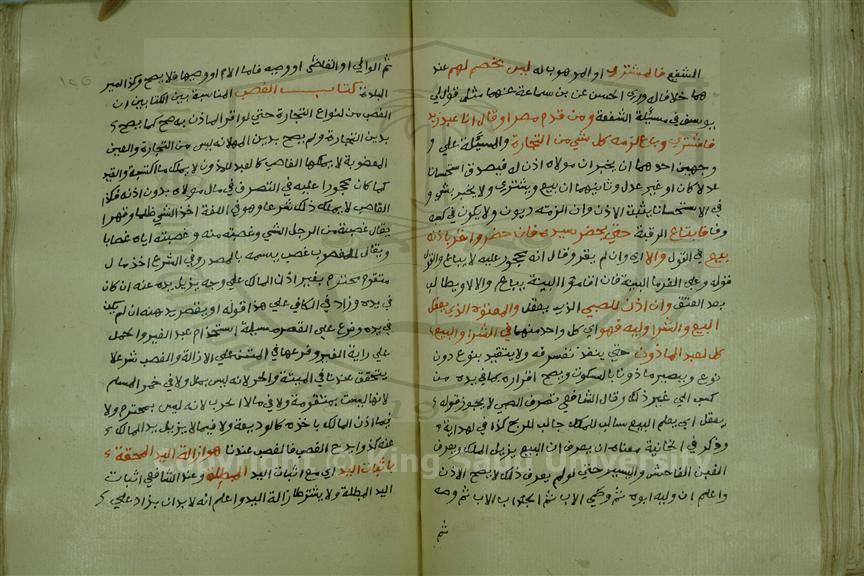 الشفيع فالمشتري او الموهوب له ليس بخصم لهم عند
هما خلافا له وروى الحسن عن بن سماعة عنهما مثل قوله لابي
يوسف في مسئلة الشفعة ومن قدم مصرا وقال انا عبد زيد
فاشترى وباع لزمه كل شي من التجارة والمسئلة على
وجهين احدهما ان يخبر ان مولاه اذن له فيصدق استحسانا
عدلا كان او غير عدل وثانيهما ان يبيع ويشتري ولا يخبر بشي
في الاستحسان يثبت الاذن وان لزمته ديون ولا يكون في كسبه
وفا فابتاع الرقبة حتى يحضر سيده فان حضر واقر باذنه
بيع في القول والا اي وان لم يقر وقال انه محجور عليه لا يباع والقول
قوله وعلى الغرما البينة فان اقاموا البينة يباع والا لا ويطالب
بعد العتق وان اذن للصبي الذي يعقل والمعتوه الذي يعقل
البيع والشرا وليه فهو اي كل واحد منهما في الشرا والبيع
كالعبد الماذون حتى ينفذ تصرفه ولا يتقيد بنوع دون
نوع ويصير ماذونا بالسكوت ويصح اقراره بما في يده من
كسب الى غير ذلك وقال الشافعي تصرف الصبي لا يجوز قوله
يعقل اي يعلم البيع سالب للملك جالب للربح كذا في الهداية
وذكر في الخانية معناه ان يعرف ان البيع يزيل الملك ويعرف
الغبن الفاحش واليسير حتى لو لم يعرف ذلك لا يصح الاذن
واعلم ان وليه ابوه ثم وصي الاب ثم الجد اب الاب ثم وصيه
ثم
ثم الوالي او القاضي او وصيه فاما الام او وصيها فلا يصح وكذا امير
البلدة كتاب الغصب المناسبة بين الكتابين ان
الغصب من انواع التجارة حتى لو اقر الماذون به صح كما يصح
بدين التجارة ولم يصح بدين المهر لانه ليس من التجارة والعين
المغصوبة لا يملكها الغاصب كالعبد الماذون لا يملك ما اكتسبه والعبد
كما كان محجورا عليه في التصرف في مال مولاه بدون اذنه فكذا
الغاصب لا يملك ذلك شرعا وهو في اللغة اخذ الشي ظلما وقهرا
يقال غصبت من الرجل الشي وغصبته منه وغصبته اياه غصبا
ويقال للمغصوب غصب يسمه بالمصدر وفي الشرع اخذ مال
متقوم محترم بغير اذن المالك على وجه يزيل يده عنه ان كان
في يده وزاد في الكافي على هذا قوله او يقصر يده عنه ان لم يكن
في يده وفرع على القصر مسئلة استخدام عبد الغير والحمل
على دابة الغير وفرعها في المتن على الازالة والغصب شرعا لا
يتحقق عندنا في الميتة والحر لانه ليس بمال ولا في خمر المسلم
لانها ليست بمتقومة ولا في مال الحرب لانه ليس بمحترم ولا
فيما اذن المالك باخذه كالوديعة ولا فيما لا يزيل يد المالك
عنه كذا وايدح الغصب فالغصب عندنا هو ازالة اليد المحقة
باثبات اليد اي مع اثبات اليد المبطلة وعند الشافعي اثبات
اليد المبطلة ولا يشترط ازالة اليد واعلم انه لا بد ان يزاد على